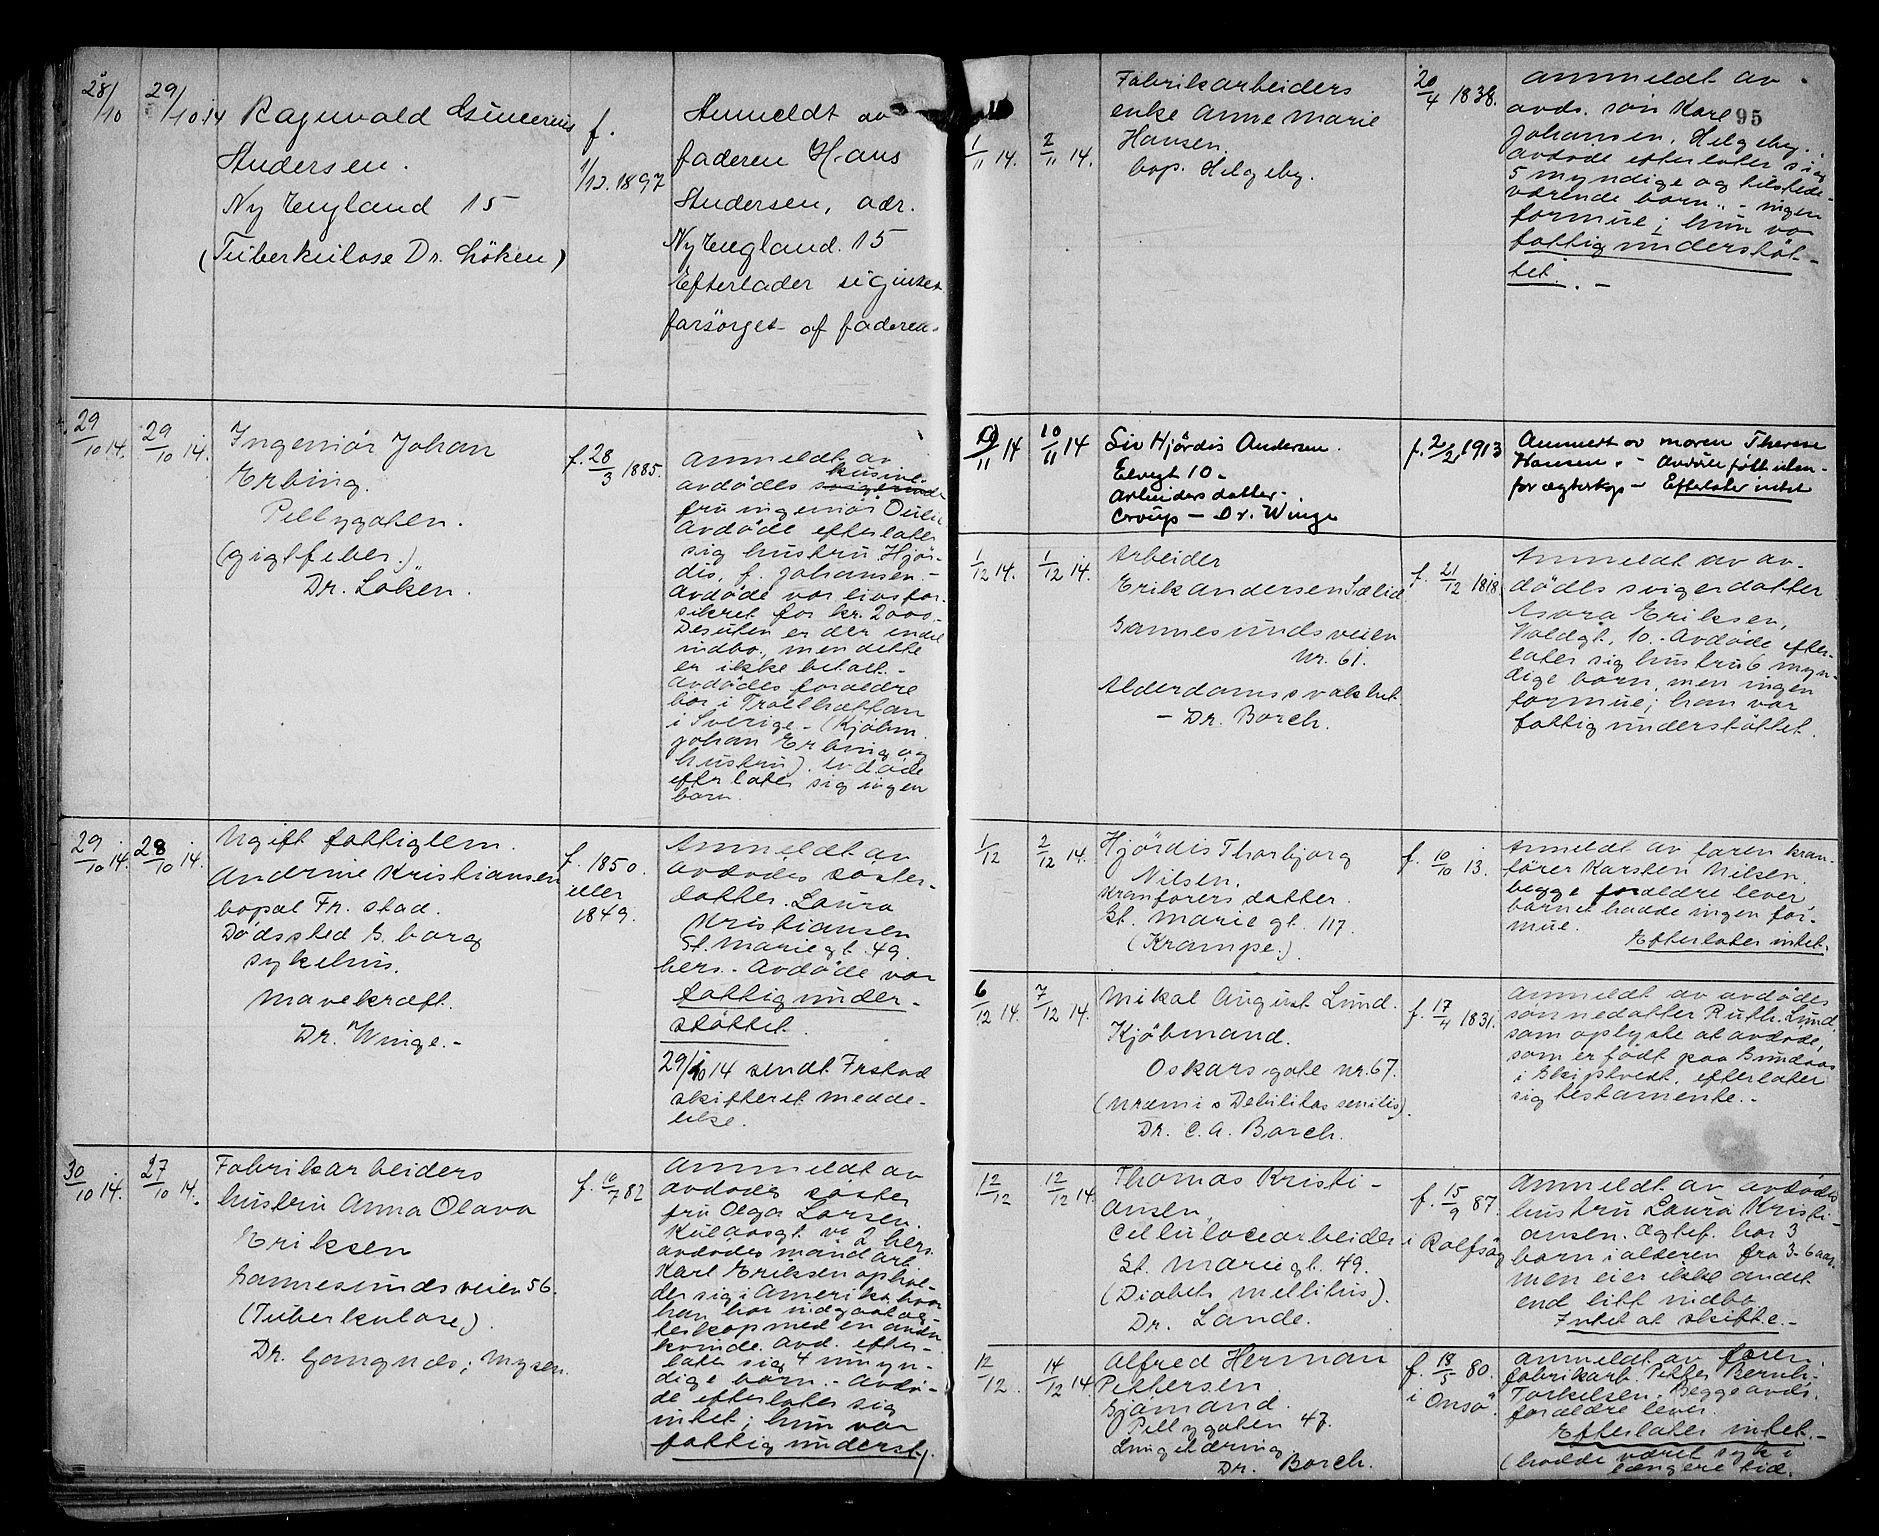 28/10 29/10.14 Ragnvald Andersen.
Ny England 15
(Tuberkulose Dr. Löken)
f.
1/12. 1897
Anmeldt av
faderen Hans
Andersen, adr.
Ny England 15
Efterlader sig intet
forsörget af faderen.
29/10 14. 29/10 14. Ingeniör Johan
Erbing.
Pellygaten.
(gigtfeber.)
Dr. Löken.
f. 28/3 1885.
Anmeldt av
kusine
avdödes svigerinde
fru ingeniör
Avdöde efterlater
sig hustru Hjör-
dis, f. Johansen.-
Avdöde var livsfor-
sikret for kr. 2000.-
Desuten er der endel
indbo, men dette
er ikke betalt.-
Avdödes foreldre
bor i Trollhättan
i Sverige - (Kjöbm.
Johan Erbing og
hustru). Avdöde
efterlater sig ingen
barn.
29/10 14. 28/10 14. Ugift fattiglem.
Andrine Kristiansen
bopæl Fr. stad.
Dödssted S. borg
sykehus.
Mavekræft.
Dr. Winge.-
f. 1850.
eller
1849.
Anmeldt av
avdödes söster-
datter Laura
Kristiansen
St. Marie gt. 49.
hers.- Avdöde var
fattigunder-
støttet.
29/10 14 sendt Frstad
skifteret medde-
lelse.
30/10 14. 27/10 14. Fabrikarbeiders
hustru Anna Olava
Eriksen
Sannesundsveien 56.
(Tuberkulose.)
Dr. Mysen.
f. 10/7 82
Anmeldt av
avdödes söster
fru Olga Larsen.
2 hers.
avdödes mand arb.
Karl Eriksen ophol-
der sig i Amerika hvor
han har indgaat æg-
teskap med en anden
kvinde. Avd. efter-
later sig 4 umyn-
dige barn.- Avdö-
de efterlater sig
intet; hun var
fattigunderst.
95
1/11 14. 2/11 14. Fabrikarbeiders
enke Anne Marie
Hansen.
bop. Helgeby.
20/4 1838.
Anmeldt av
avds. sön Karl
Johansen, Helgeby.
Avdöde efterlater sig
5 myndige og tilstede-
værende barn.- ingen
formue; hun var
fattigunderstöt-
tet. -
10/11 14 10/11 14 Siv Hjördis Andersen.
Elvegt 10-
Arbeidersdatter-.
Croup - Dr. Winge
f. 2/2 1913
Anmeldt av moren Therese
Hansen.- Avdöde født uten-
for ægteskap - Efterlater intet
1/12 14. 1/12 14. Arbeider
Erik Andersen Sælid
Sannesundsveien
nr. 61.
Alderdomssvakhet
- Dr. Borch.
f. 21/12 1818.
Anmeldt av av-
dödes svigerdatter
Asora Eriksen,
Voldgt. 10.- Avdöde efter-
later sig hustru 6 myn-
dige barn, men ingen
formue; han var
fattigunderstöttet.
1/12 2/12 14. Hjördis Thorbjorg
Nilsen.
Kranförers datter.
St. Marie gt. 117.
(Krampe.)
f. 10/10 13.
Anmeldt av faren kran-
förer Karsten Nilsen.
begge foreldre lever
barnet hadde ingen for-
mue.
Efterlater intet.
6/12 14. 7/12 14. Mikal August Lund.
Kjöbmand.
Oskars gate nr. 67.
(Uræmi o Debilitas senilis).
Dr. C. A. Borch.
f. 17/4 1831.
Anmeldt av avdödes
sönnedatter Ruth Lund,
som oplyste at avdöde,
som er födt paa Gundaas
i Skiptvedt, efterlater
sig testamente.-
12/12 12/12 14. Thomas Kristi-
ansen,
Cellulosearbeider
St. Marie gt. 49.
(Diabets mellitus).
Dr. Lande.
f. 15/9 87.
i Rolfsöy
Anmeldt av avdödes
hustru Laura Kristi-
ansen. Ægtef. har 3
barn i alderen fra 3-6 aar,
men eier ikke andet
end litt indbo
Intet at skifte.-
12/12 14/12 14. Alfred Herman
Pettersen
Sjömand.
Pellygaten 47.
Lungetæring
Dr. Borch.
f. 18/5 80.
i Onsö.
Anmeldt av faren
fabrikarb. Petter Bernh.
Torkelsen. Begge avds.
foreldre lever.
Efterlater intet.-
(hadde været syk i
længere tid.